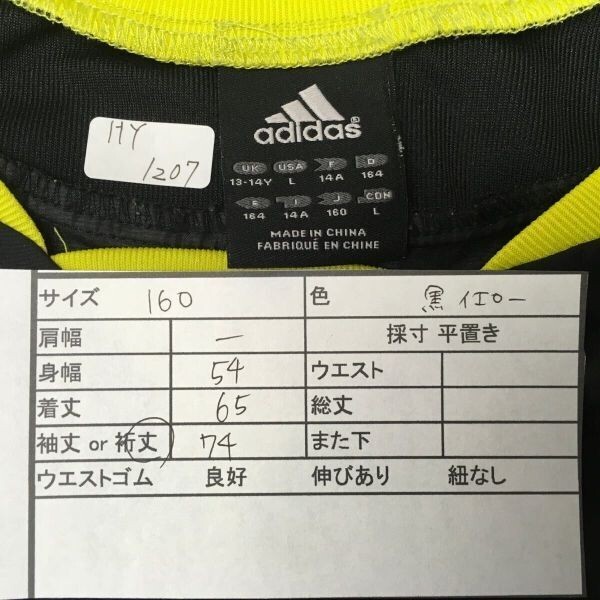 HY
1207
adidas
UK USA F D
13-14Y L 14A 164
E I J CDN
164 14A 160 L
MADE IN CHINA
FABRIQUÉ EN CHINE
サイズ 160 色 黒 イエロー
肩幅 — 採寸 平置き
身幅 54 ウエスト
着丈 65 総丈
袖丈 or 裄丈 74 また下
ウエストゴム 良好 伸びあり 紐なし